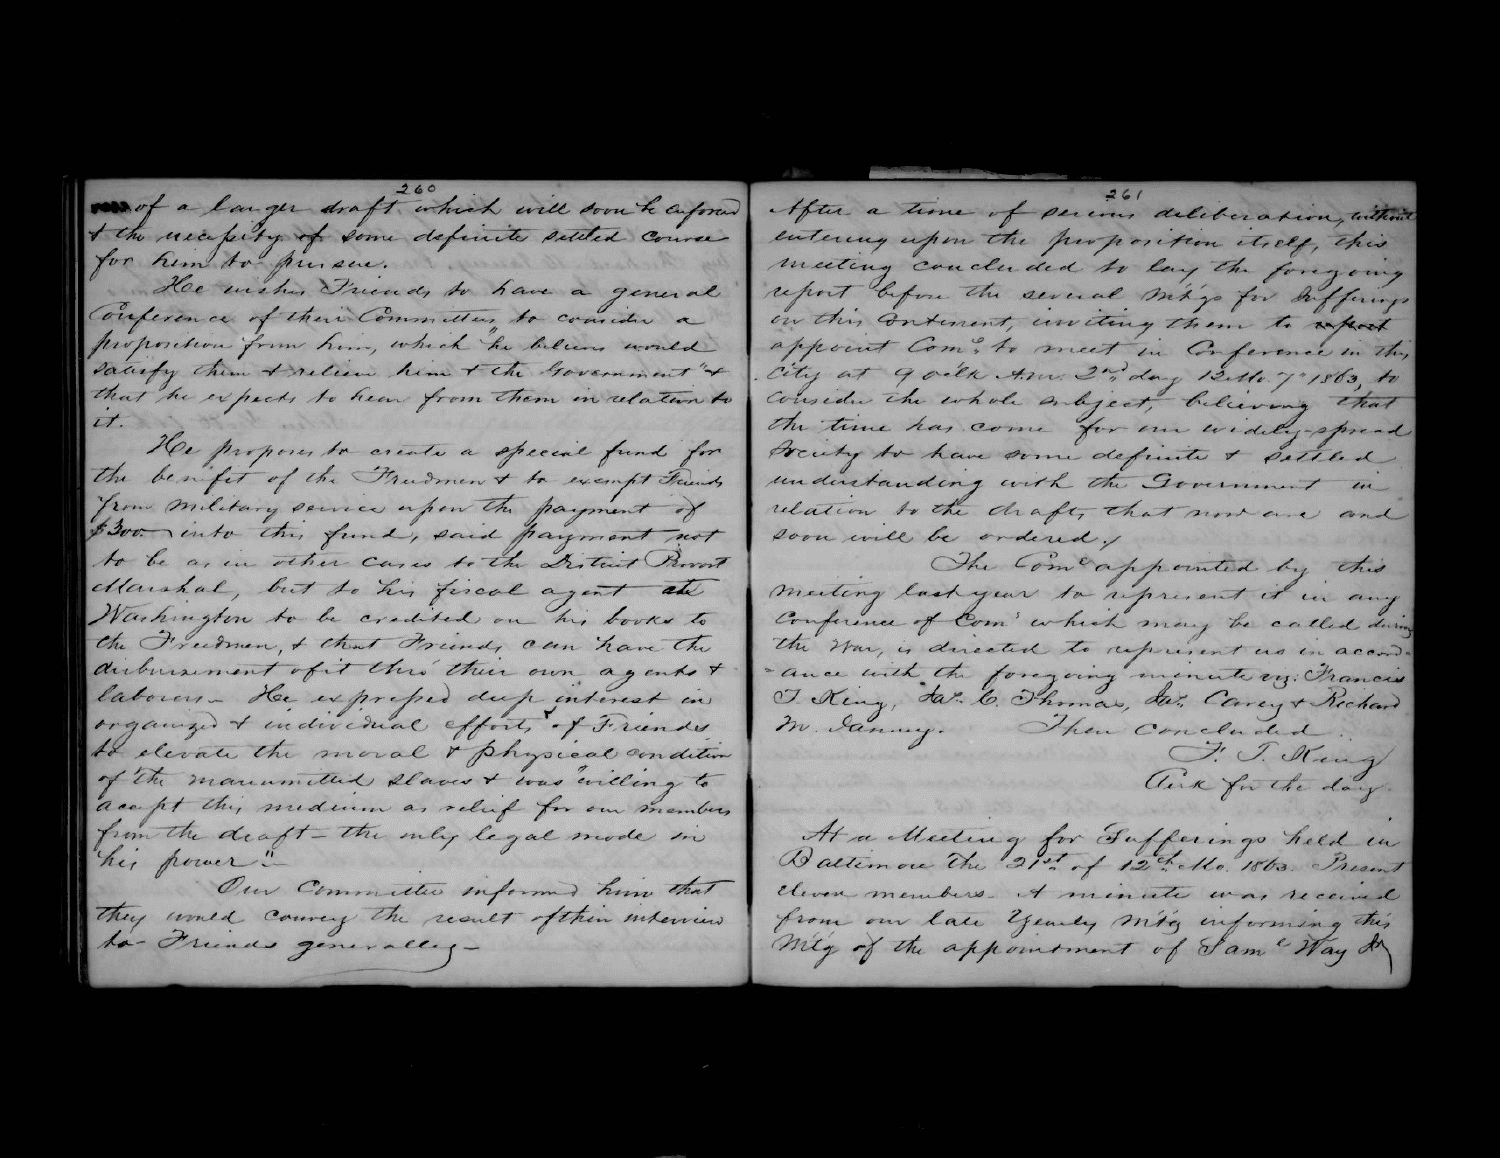 260
of a larger draft which will soon be enforced
& the necessity of some definite settled course
for him to pursue.
He wishes Friends to have a general
Conference of their Committees, to consider a
proposition from him, which "he believes would
satisfy them & relieve him & the Government" &
that he expects to hear from them in relation to
it.
He proposes to create a special fund for
the benefit of the Freedmen & to exempt Friends
from military service upon the payment of
$300. into this fund, said payment not
to be as in other cases to the District Provost
Marshal, but to his fiscal agent at
Washington to be credited on his books to
the Freedmen, & that Friends can have the
disbursement of it thro' their own agents &
laborers— He expressed deep interest in
organized & individual efforts of Friends
to elevate the moral & physical condition
of the manumitted slaves & was "willing to
accept this medium as relief for our members
from the draft— the only legal mode in
his power"—
Our Committee informed him that
they would convey the result of their interview
to Friends generally—
261
After a time of serious deliberation, without
entering upon the proposition itself, this
meeting concluded to lay the foregoing
report before the several Mt'gs for Sufferings
on this Continent, inviting them to report
appoint Come. to meet in Conference in this
City at 9 o'clk A.M. 2nd day 12 Mo 7" 1863, to
consider the whole subject, believing that
the time has come for our widely-spread
Society to have some definite & settled
understanding with the Government in
relation to the drafts that now are and
soon will be ordered.
The Come appointed by this
meeting last year to represent it in any
Conference of Coms which may be called during
the War, is directed to represent us in accord-
-ance with the foregoing minute viz: Francis
T. King, Jas. C. Thomas, Jas. Carey & Richard
M. Janney. Then concluded.
F. T. King
Clerk for the day.
At a Meeting for Sufferings held in
Baltimore the 21st of 12th Mo. 1863. Present
eleven members. A minute was received
from our late Yearly Mt'g informing this
Mt'g of the appointment of Saml Way Jr